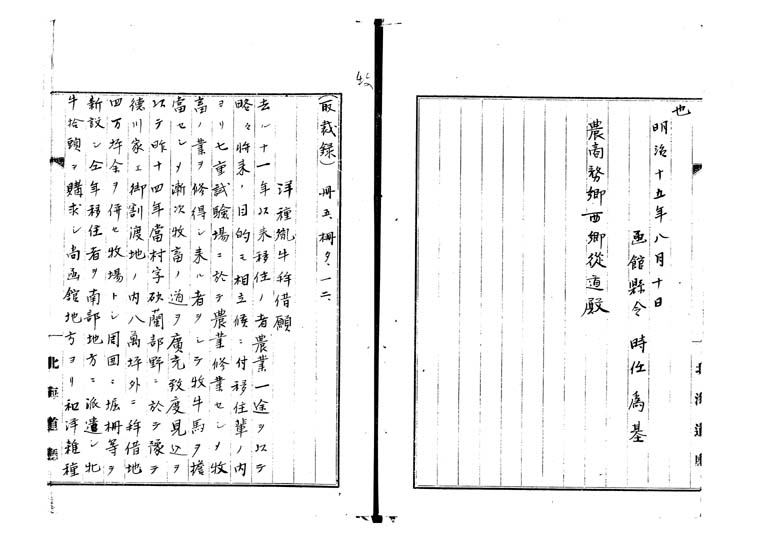 也
明治十五年八月十日
函館縣令 時任為基
農商務卿西郷從道殿
北海道廳
(取裁録) 冊五、柵ク、一二、
洋種乳牛拝借願
去ル十一年以来移住ノ者農業一途ヲ以テ
略々将来ノ目的モ相立候ニ付移住輩ノ内
ヨリ七重試験場ニ於テ農業修業セシメ牧
畜ノ業ヲ修得シ来ル者ヲシテ牧牛馬ヲ擔
當セシメ漸次牧畜ノ道ヲ廣充致度見込ヲ
以テ昨十四年當村字砂蘭部野ニ於テ豫テ
徳川家エ御割渡地ノ内八萬坪外ニ拝借地
四万坪余ヲ併セ牧場トシ周囲ニ堀柵等ヲ
新設シ仝年移住者ヲ南部地方ニ派遣シ牝
牛拾頭ヲ購求シ尚函館地方ヨリ和洋雑種
北海道廳